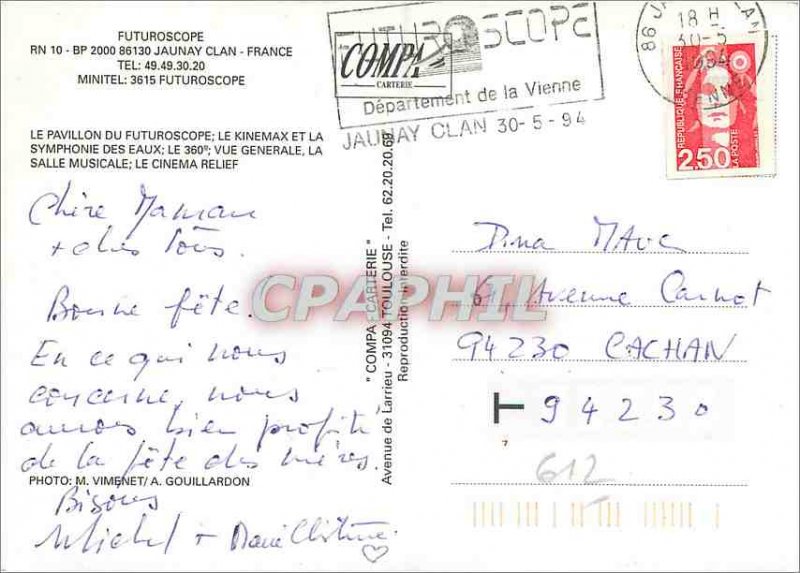 FUTUROSCOPE
RN 10 - BP 2000 86130 JAUNAY CLAN - FRANCE
TEL: 49.49.30.20
MINITEL: 3615 FUTUROSCOPE
FUTUROSCOPE
COMPA
CARTERIE
Département de la Vienne
JAUNAY CLAN 30-5-94
18 H
30-5
1994
REPUBLIQUE FRANÇAISE
2,50
LA POSTE
LE PAVILLON DU FUTUROSCOPE; LE KINEMAX ET LA
SYMPHONIE DES EAUX; LE 360°; VUE GENERALE, LA
SALLE MUSICALE; LE CINEMA RELIEF
Chère Maman
+ chers Tous.
Bonne fête.
En ce qui nous
concerne, nous
aurons bien profité
de la fête des mères.
PHOTO: M. VIMENET/ A. GOUILLARDON
Bisous
Michel + Marie Christine.
" COMPA - CARTERIE "
Avenue de Larrieu - 31094 TOULOUSE - Tel. 62.20.20.69
Reproduction interdite
CPAPHIL
61, Avenue Carnot
94230 CACHAN
T 94230
7
612